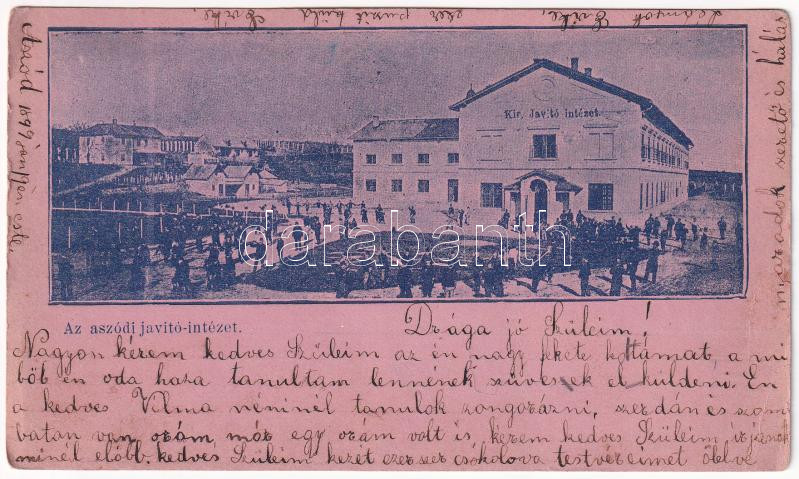 Aszód 1899 este.
Kir. Javitó intézet.
darabanth
Az aszódi javitó-intézet.
Drága jó Szüleim!
Nagyon kérem kedves Szüleim az én nagy fekete kottámat, a mi
ből én oda haza tanultam lennének szivesek el küldeni. Én
a kedves Vilma néninél tanulok zongorázni, szerdán és szom
batan van orám, már egy orám volt is, kérem kedves Szüleim irjanak
minél előbb. kedves Szüleim kezét ezerszer csokolova testvéreimet ölelve
maradok szerető és hálás
leányok Erike,
ezer puszit küld
Erike,